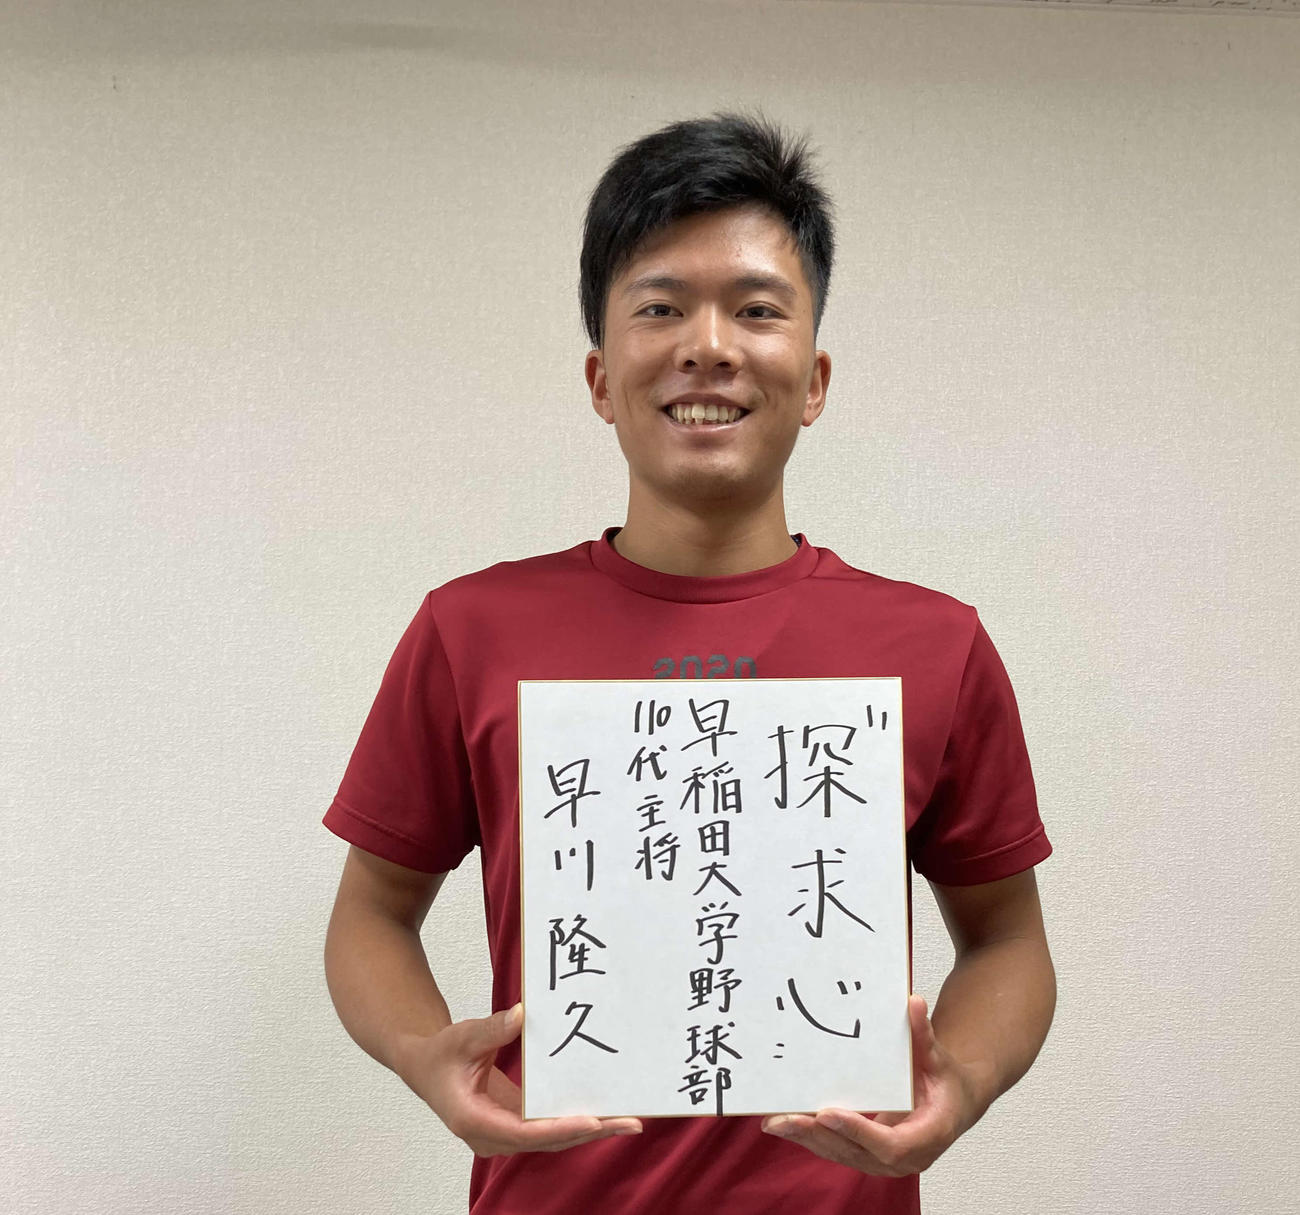 2020
"探求心"
早稲田大学野球部
110代主将
早川隆久